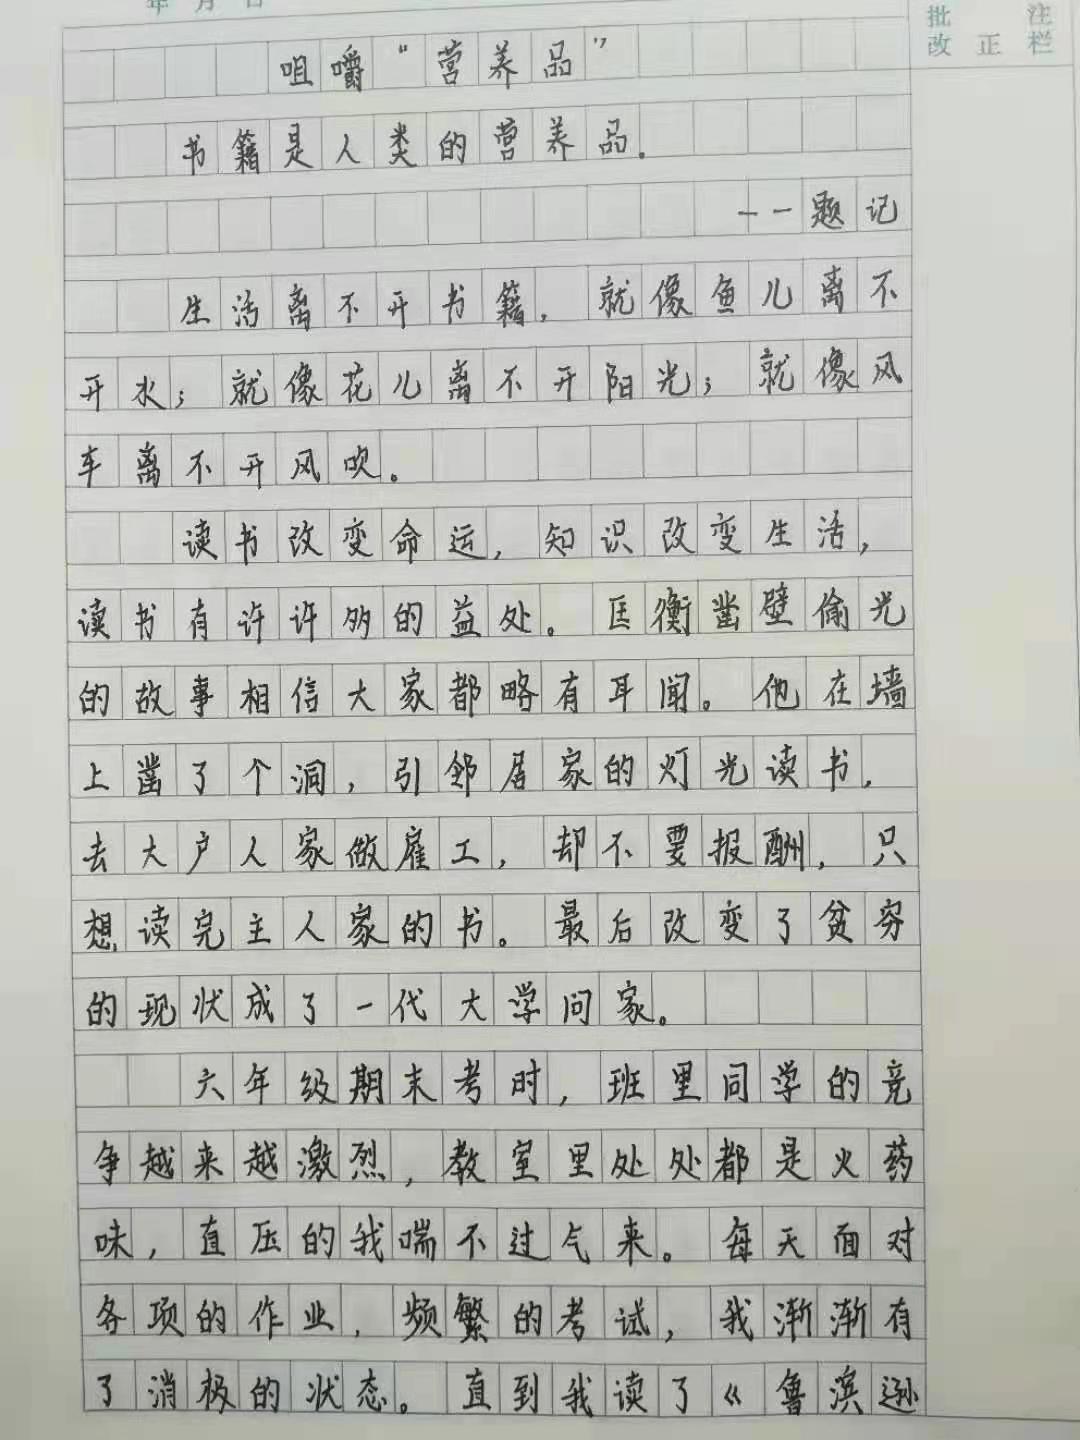 年 月 日
批 注
改 正 栏
咀嚼“营养品”
书籍是人类的营养品.
--题记
生活离不开书籍,就像鱼儿离不
开水;就像花儿离不开阳光;就像风
车离不开风吹。
读书改变命运,知识改变生活,
读书有许许多的益处。匡衡凿壁偷光
的故事相信大家都略有耳闻。他在墙
上凿了个洞,引邻居家的灯光读书,
去大户人家做雇工,却不要报酬,只
想读完主人家的书。最后改变了贫穷
的现状成了一代大学问家。
六年级期末考时,班里同学的竞
争越来越激烈,教室里处处都是火药
味,直压的我喘不过气来。每天面对
各项的作业,频繁的考试,我渐渐有
了消极的状态。直到我读了《鲁滨逊